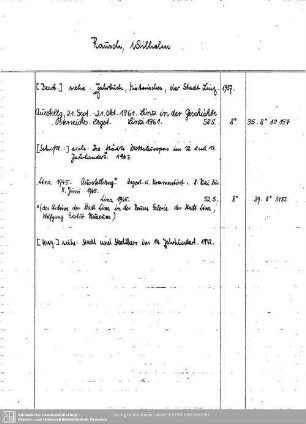 Rausch, Wilhelm
[Bearb.] siehe: Jahrbuch, Historisches, der Stadt Linz. 1957.
Ausstellg. 21. Sept.-21. Okt. 1961. Linz in der Geschichte
Österreichs.
Linz 1961. 52 S. 8° 35. 8° 10 157
siehe: Die Städte Mitteleuropas im 12. und 13.
Jahrhundert. 1963
Linz 1945. Ausstellung 8. Mai bis
5. Juni
Linz 52 S. 8° 39. 8° 3182
der Stadt Linz in der Neuen Galerie der Stadt Linz,
Wolfgang Gurlitt Museum)
[Hrsg.] siehe: Stadt und Stadtherr im 14. Jahrhundert. 1972.
Sächsische Landesbibliothek -
Staats- und Universitätsbibliothek Dresden